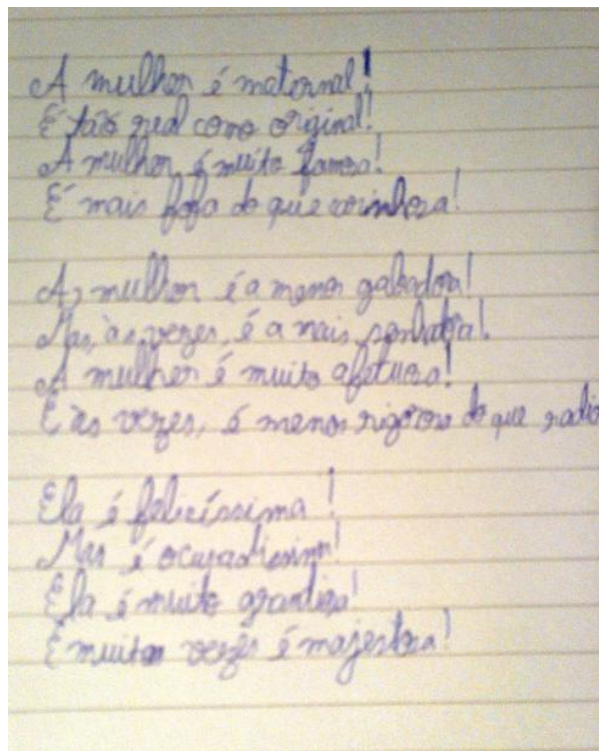 A mulher é maternal!
É tão real como original!
A mulher é muito famosa!
É mais fofa do que carinhosa!
A mulher é a menos gabadora!
Mas, às vezes, é a mais sonhadora!
A mulher é muito afetuosa!
E às vezes, é menos rigorosa do que
Ela é felicíssima!
Mas é ocupadíssima!
Ela é muito grandiosa!
E muitas vezes é majestosa!